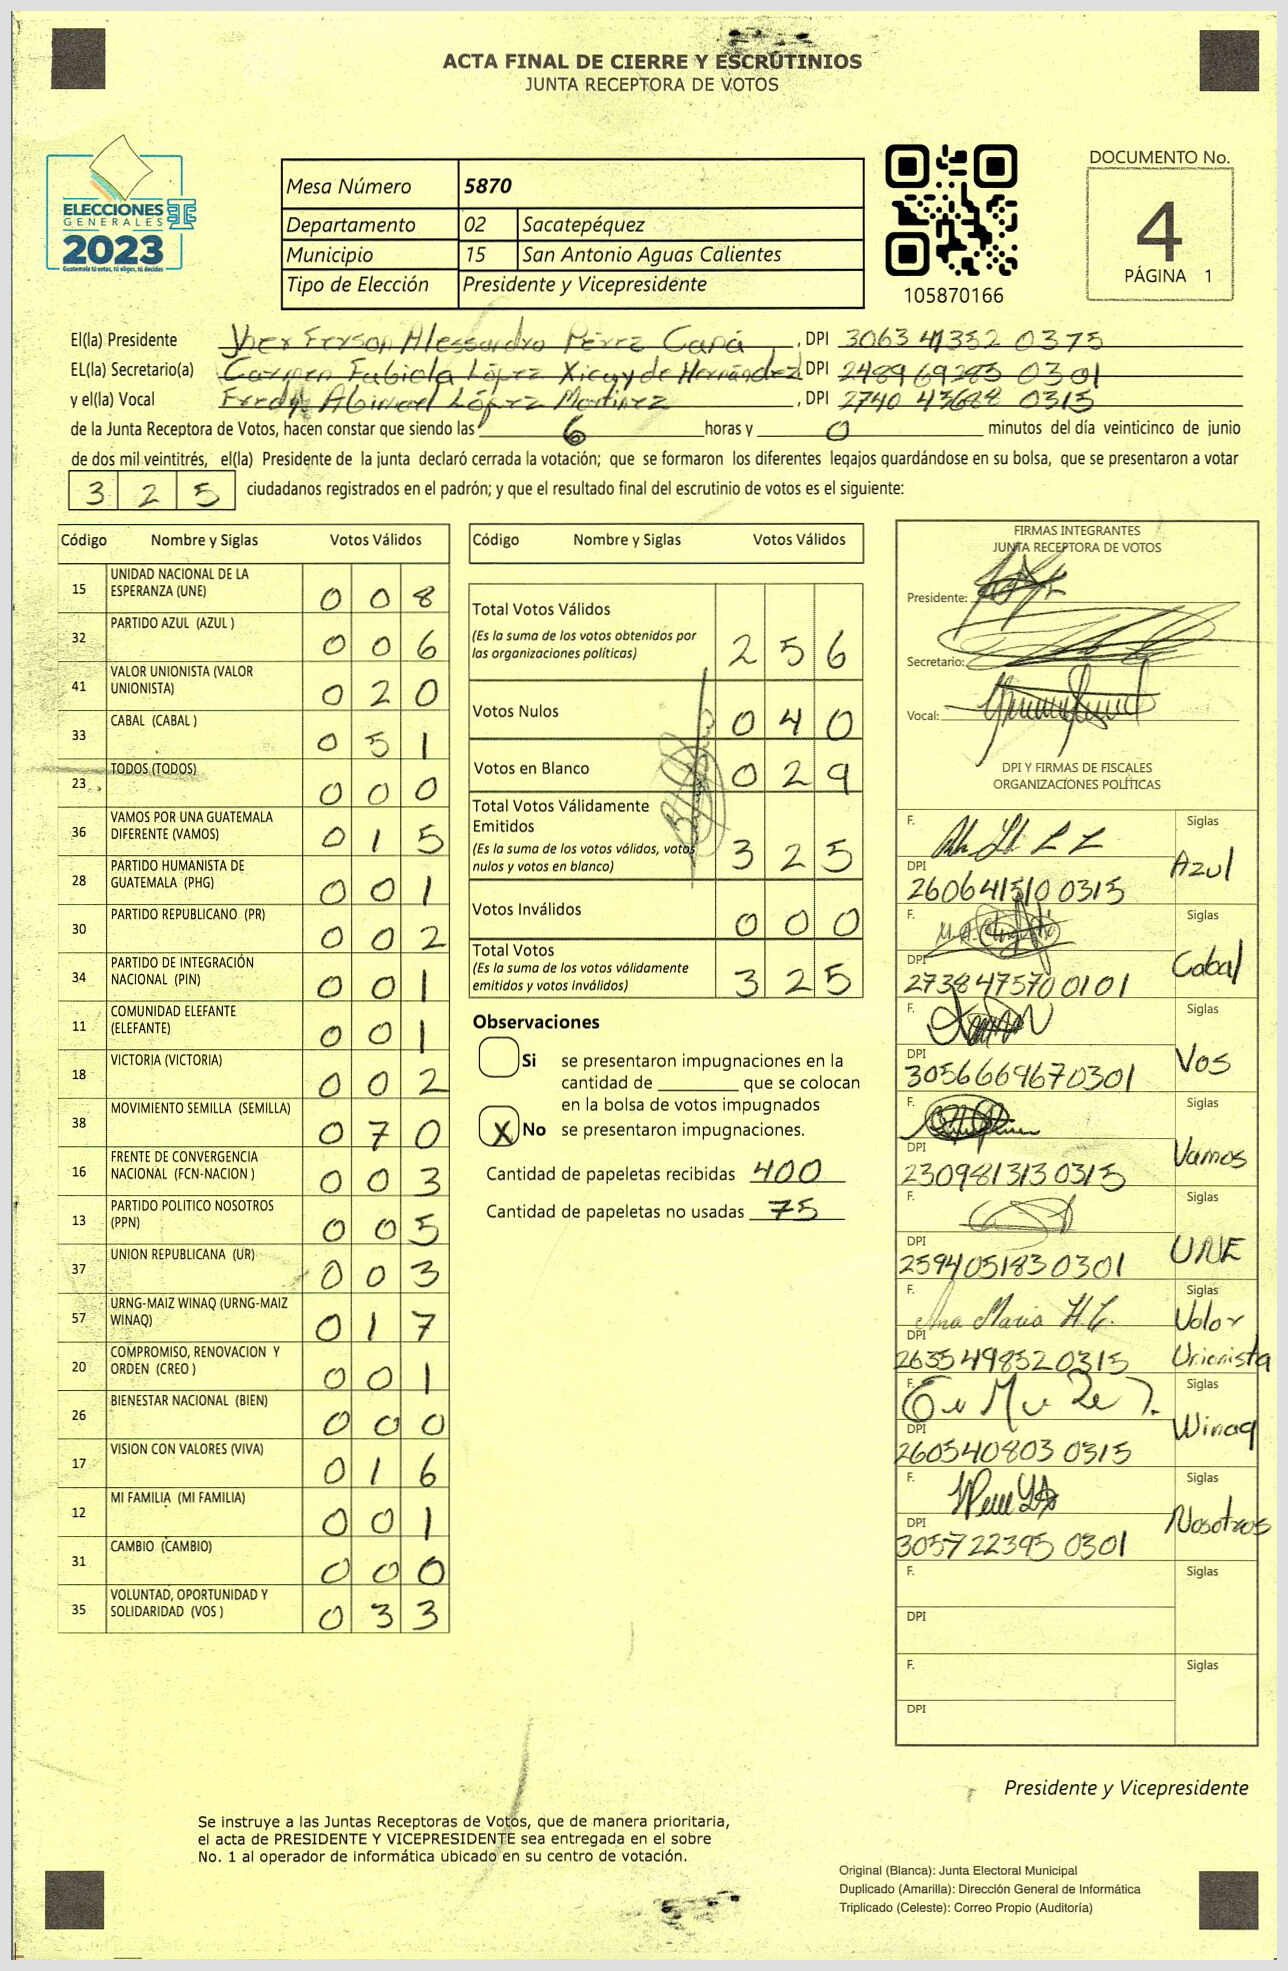 ACTA FINAL DE CIERRE Y ESCRUTINIOS
JUNTA RECEPTORA DE VOTOS
ELECCIONES
GENERALES
2023
Guatemala tú votas, tú eliges, tú decides
Mesa Número 5870
Departamento 02 Sacatepéquez
Municipio 15 San Antonio Aguas Calientes
Tipo de Elección Presidente y Vicepresidente
105870166
DOCUMENTO No.
4
PÁGINA 1
El(la) Presidente Alessandro Pérez Caná, DPI 3063 41352 0375
EL(la) Secretario(a) Carmen Fabiola López Xicay de Hernández DPI 2489 69285 0301
y el(la) Vocal Fredy Abimael López Martínez, DPI 2740 43688 0315
de la Junta Receptora de Votos, hacen constar que siendo las 6 horas y 0 minutos del día veinticinco de junio
de dos mil veintitrés, el(la) Presidente de la junta declaró cerrada la votación; que se formaron los diferentes legajos guardándose en su bolsa, que se presentaron a votar
3 2 5 ciudadanos registrados en el padrón; y que el resultado final del escrutinio de votos es el siguiente:
Código Nombre y Siglas Votos Válidos
15 UNIDAD NACIONAL DE LA ESPERANZA (UNE) 0 0 8
32 PARTIDO AZUL (AZUL ) 0 0 6
41 VALOR UNIONISTA (VALOR UNIONISTA) 0 2 0
33 CABAL (CABAL ) 0 5 1
23 TODOS (TODOS) 0 0 0
36 VAMOS POR UNA GUATEMALA DIFERENTE (VAMOS) 0 1 5
28 PARTIDO HUMANISTA DE GUATEMALA (PHG) 0 0 1
30 PARTIDO REPUBLICANO (PR) 0 0 2
34 PARTIDO DE INTEGRACIÓN NACIONAL (PIN) 0 0 1
11 COMUNIDAD ELEFANTE (ELEFANTE) 0 0 1
18 VICTORIA (VICTORIA) 0 0 2
38 MOVIMIENTO SEMILLA (SEMILLA) 0 7 0
16 FRENTE DE CONVERGENCIA NACIONAL (FCN-NACION ) 0 0 3
13 PARTIDO POLITICO NOSOTROS (PPN) 0 0 5
37 UNION REPUBLICANA (UR) 0 0 3
57 URNG-MAIZ WINAQ (URNG-MAIZ WINAQ) 0 1 7
20 COMPROMISO, RENOVACION Y ORDEN (CREO ) 0 0 1
26 BIENESTAR NACIONAL (BIEN) 0 0 0
17 VISION CON VALORES (VIVA) 0 1 6
12 MI FAMILIA (MI FAMILIA) 0 0 1
31 CAMBIO (CAMBIO) 0 0 0
35 VOLUNTAD, OPORTUNIDAD Y SOLIDARIDAD (VOS ) 0 3 3
Código Nombre y Siglas Votos Válidos
Total Votos Válidos 2 5 6
(Es la suma de los votos obtenidos por
las organizaciones políticas)
Votos Nulos 0 4 0
Votos en Blanco 0 2 9
Total Votos Válidamente
Emitidos 3 2 5
(Es la suma de los votos válidos, votos
nulos y votos en blanco)
Votos Inválidos 0 0 0
Total Votos 3 2 5
(Es la suma de los votos válidamente
emitidos y votos inválidos)
Observaciones
Si se presentaron impugnaciones en la
cantidad de ________ que se colocan
en la bolsa de votos impugnados
X No se presentaron impugnaciones.
Cantidad de papeletas recibidas 400
Cantidad de papeletas no usadas 75
FIRMAS INTEGRANTES
JUNTA RECEPTORA DE VOTOS
Presidente:
Secretario:
Vocal:
DPI Y FIRMAS DE FISCALES
ORGANIZACIONES POLÍTICAS
F. Siglas
Azul
DPI
2606415100315
F. Siglas
Cabal
DPI
2738475700101
F. Siglas
Vos
DPI
3056669670301
F. Siglas
Vamos
DPI
2309813130315
F. Siglas
UNE
DPI
2594051830301
F. Ana Maria H.C. Siglas
Valor
Unionista
DPI
2635498520315
F. Siglas
Winaq
DPI
2605408030315
F. Siglas
Nosotros
DPI
3057223950301
F. Siglas
DPI
F. Siglas
DPI
Presidente y Vicepresidente
Se instruye a las Juntas Receptoras de Votos, que de manera prioritaria,
el acta de PRESIDENTE Y VICEPRESIDENTE sea entregada en el sobre
No. 1 al operador de informática ubicado en su centro de votación.
Original (Blanca): Junta Electoral Municipal
Duplicado (Amarilla): Dirección General de Informática
Triplicado (Celeste): Correo Propio (Auditoría)